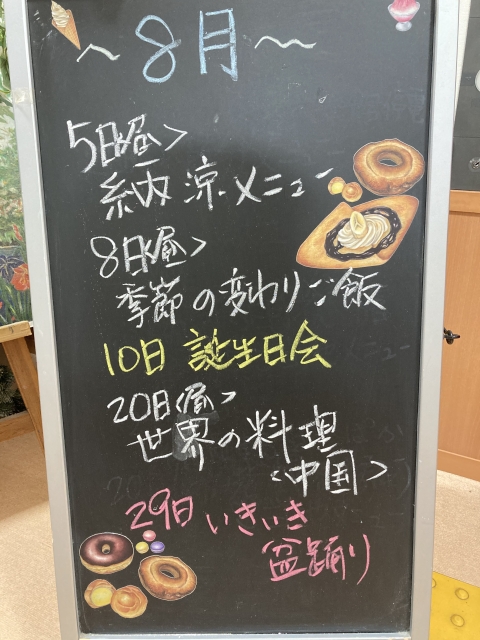 ～8月～
5日〈昼〉
納涼メニュー
8日〈昼〉
季節の変わりご飯
10日 誕生日会
20日〈昼〉
世界の料理
〈中国〉
29日 いきいき
盆踊り